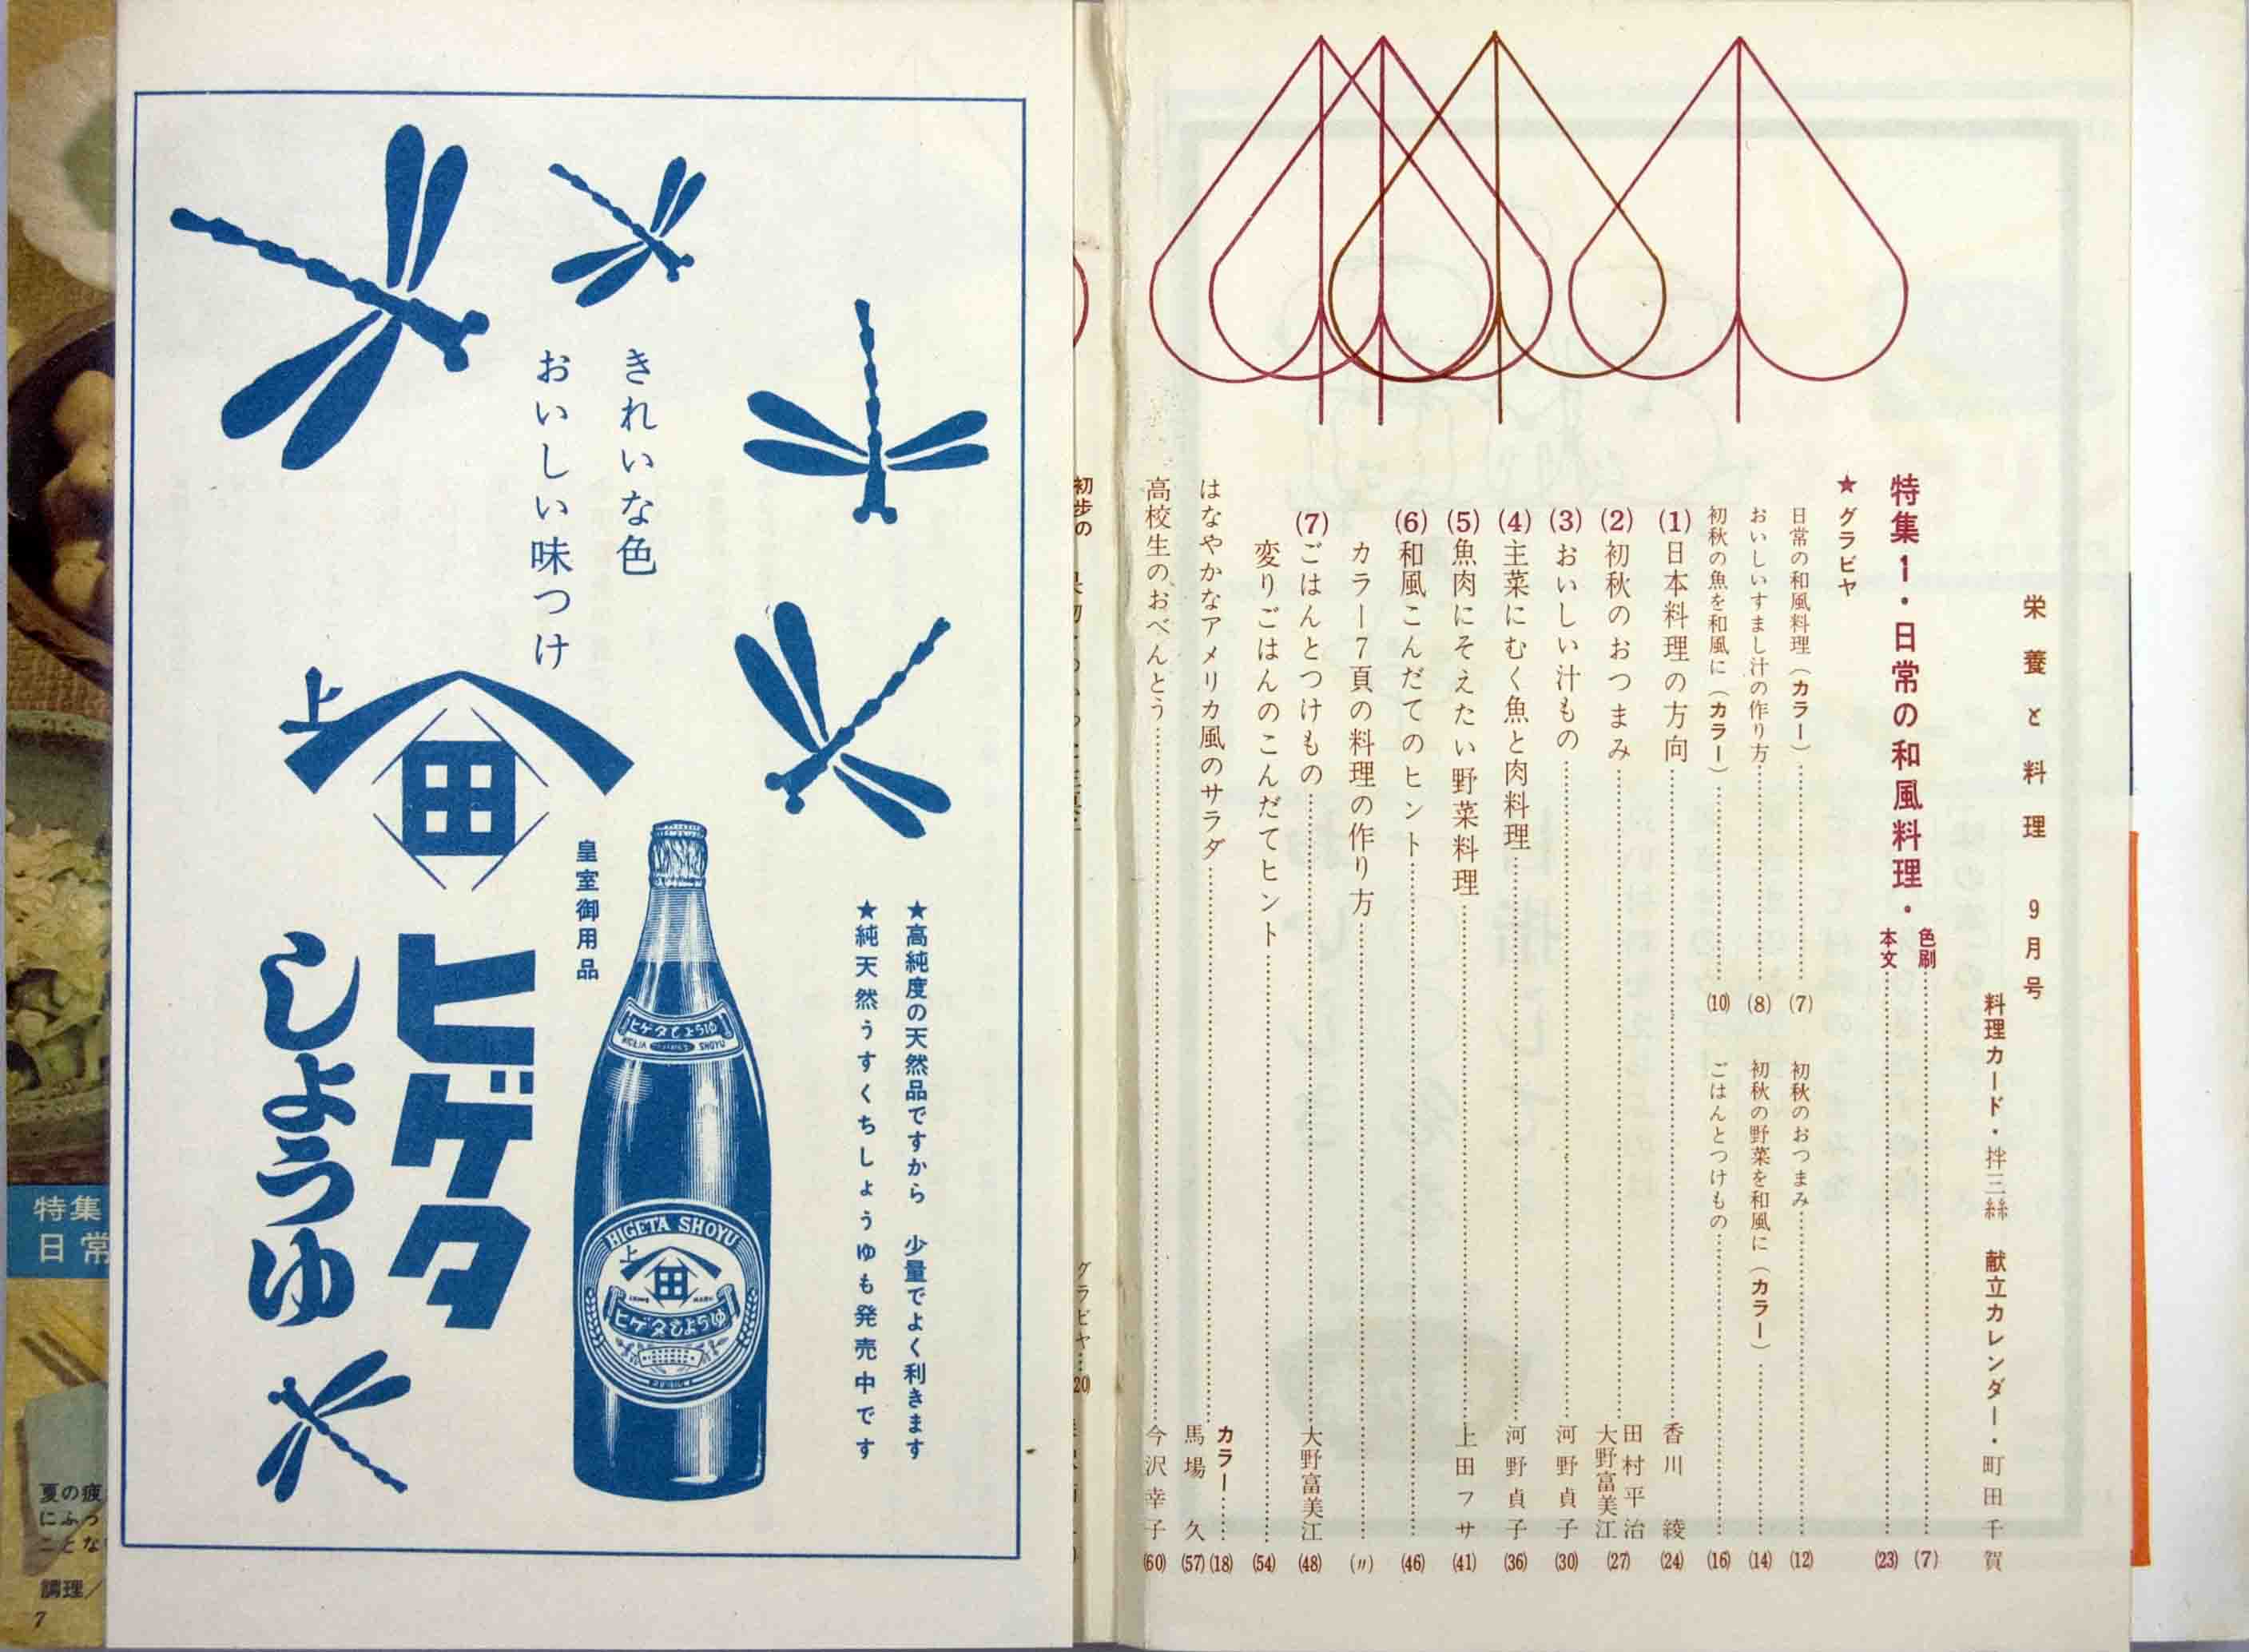 栄養と料理 9月号
料理カード・拌三絲 献立カレンダー・町田千賀
特集1・日常の和風料理・
色刷……(7)
本文……(23)
★グラビヤ
日常の和風料理(カラー)……(7)
初秋のおつまみ……(12)
おいしいすまし汁の作り方……(8)
初秋の野菜を和風に(カラー)……(14)
初秋の魚を和風に(カラー)……(10)
ごはんとつけもの……(16)
(1)日本料理の方向……香川 綾(24)
(2)初秋のおつまみ……田村平治 大野富美江(27)
(3)おいしい汁もの……河野貞子(30)
(4)主菜にむく魚と肉料理……河野貞子(36)
(5)魚肉にそえたい野菜料理……上田フサ(41)
(6)和風こんだてのヒント……(46)
カラー7頁の料理の作り方……(〃)
(7)ごはんとつけもの……大野富美江(48)
変りごはんのこんだてヒント……(54)
はなやかなアメリカ風のサラダ……カラー……(18) 馬場 久(57)
高校生のおべんとう……今沢幸子(60)
初歩の
グラビヤ…20)
きれいな色
おいしい味つけ
★高純度の天然品ですから 少量でよく利きます
★純天然うすくちしょうゆも発売中です
皇室御用品
上
田
ヒゲタ
しょうゆ
ヒゲタしょうゆ
SHOYU
HIGETA SHOYU
上
田
ヒゲタしょうゆ
特集
日常
夏の疲
にふっ
ことな
調理/
7